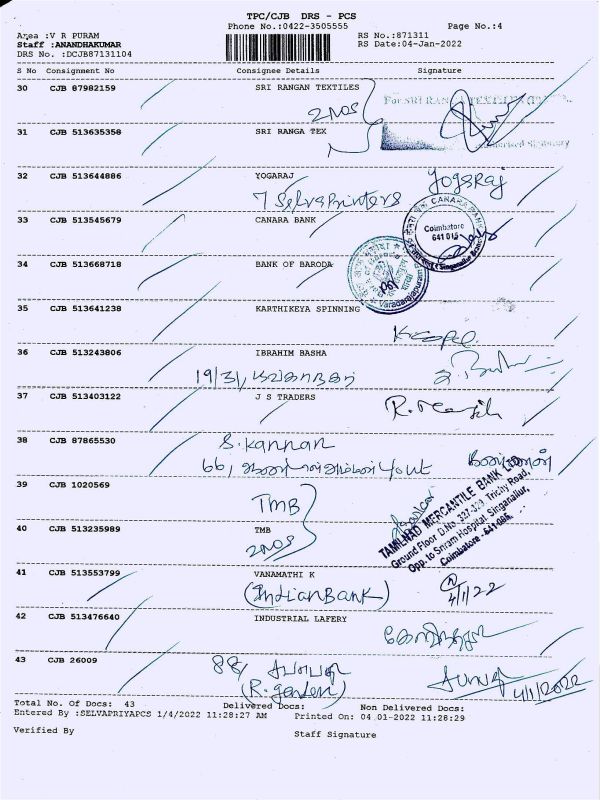 TPC/CJB DRS - PCS
Phone No.:0422-3505555 Page No.:4
Area : V R PURAM RS No.:871311
Staff :ANANDHAKUMAR RS Date:04-Jan-2022
DRS No. :DCJB87131104
S No Consignment No Consignee Details Signature
30 CJB 87982159 SRI RANGAN TEXTILES
2 NOS For SRI RANGA TEXTILES
31 CJB 513635358 SRI RANGA TEX
Authorised Signatory
32 CJB 513644886 YOGARAJ Yogaraj
7 Selva Printers
33 CJB 513545679 CANARA BANK
CANARA BANK
Coimbatore
641 015
Singanallur Branch
34 CJB 513668718 BANK OF BARODA
Varadarajapuram
35 CJB 513641238 KARTHIKEYA SPINNING
36 CJB 513243806 IBRAHIM BASHA
19/31,
37 CJB 513403122 J S TRADERS
38 CJB 87865530 S. Kannan
66,
39 CJB 1020569 TMB
TAMILNAD MERCANTILE BANK LTD
Ground Floor D.No. 327-329, Trichy Road,
Opp. to Sriram Hospital, Singanallur,
Coimbatore - 641 005.
40 CJB 513235989 TMB
2 NOS
41 CJB 513553799 VANAMATHI K
(Indian Bank) 4/1/22
42 CJB 513476640 INDUSTRIAL LAFERY
43 CJB 26009 88,
(R. garden) 4/1/2022
Total No. Of Docs: 43 Delivered Docs: Non Delivered Docs:
Entered By :SELVAPRIYAPCS 1/4/2022 11:28:27 AM Printed On: 04-01-2022 11:28:29
Verified By Staff Signature